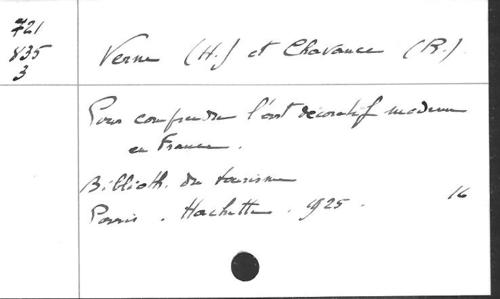 721
V35
3
Verne (H.) et Chavance (R.)
Pour comprendre l'art décoratif moderne
en France.
Biblioth. du tourisme
Paris. Hachette. 1925. 16